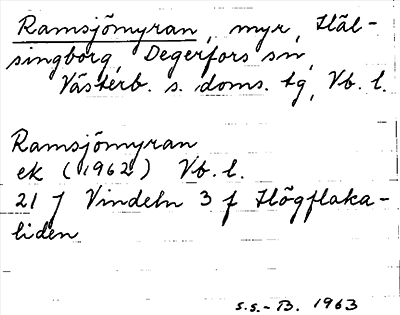 Ramsjömyran, myr, Häl-
singborg, Degerfors sn,
Västerb. s. doms. tg, Vb. l.
Ramsjömyran
ek (1962) Vb. l.
21 J Vindeln 3 f Högflaka-
liden
s.s.-B. 1963